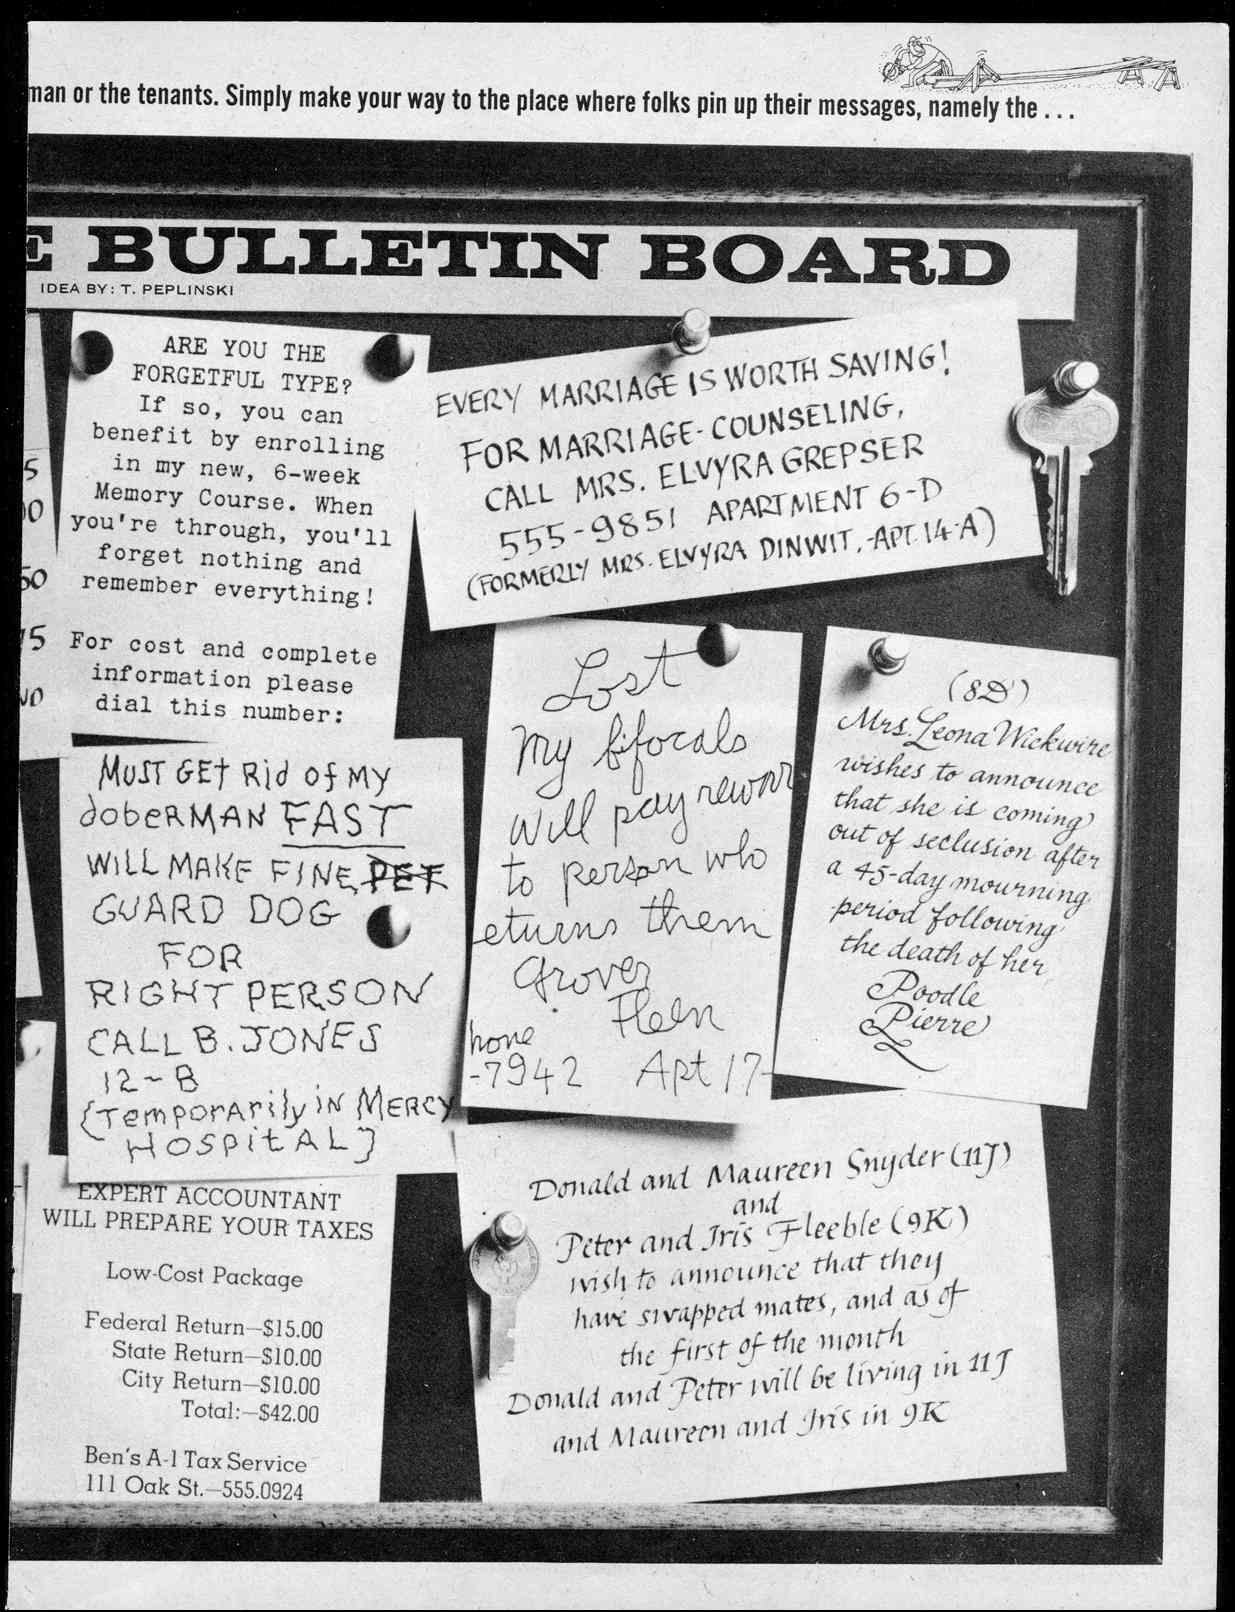 man or the tenants. Simply make your way to the place where folks pin up their messages, namely the . . .
E BULLETIN BOARD
IDEA BY: T. PEPLINSKI
5
00
50
75
ARE YOU THE
FORGETFUL TYPE?
If so, you can
benefit by enrolling
in my new, 6-week
Memory Course. When
you're through, you'll
forget nothing and
remember everything!
For cost and complete
information please
dial this number:
EVERY MARRIAGE IS WORTH SAVING!
FOR MARRIAGE-COUNSELING,
CALL MRS. ELVYRA GREPSER
555-9851 APARTMENT 6-D
(FORMERLY MRS. ELVYRA DINWIT, -APT. 14-A)
MUST GET Rid of MY
dobERMAN FAST
WILL MAKE FINE PET
GUARD DOG
FOR
RIGHT PERSON
CALL B. JONES
12-B
(TEMPORARily iN MERCY
HOSPitAL)
Lost
My bifocals
will pay rewar
to person who
eturns them
Grover
Fleen
hone
-7942 Apt 17-
(8D)
Mrs. Leona Wickwire
wishes to announce
that she is coming
out of seclusion after
a 45-day mourning
period following
the death of her
Poodle
Pierre
EXPERT ACCOUNTANT
WILL PREPARE YOUR TAXES
Low-Cost Package
Federal Return—$15.00
State Return—$10.00
City Return—$10.00
Total:—$42.00
Ben's A-1 Tax Service
111 Oak St.—555.0924
Donald and Maureen Snyder (11J)
and
Peter and Iris Fleeble (9K)
wish to announce that they
have swapped mates, and as of
the first of the month
Donald and Peter will be living in 11J
and Maureen and Iris in 9K